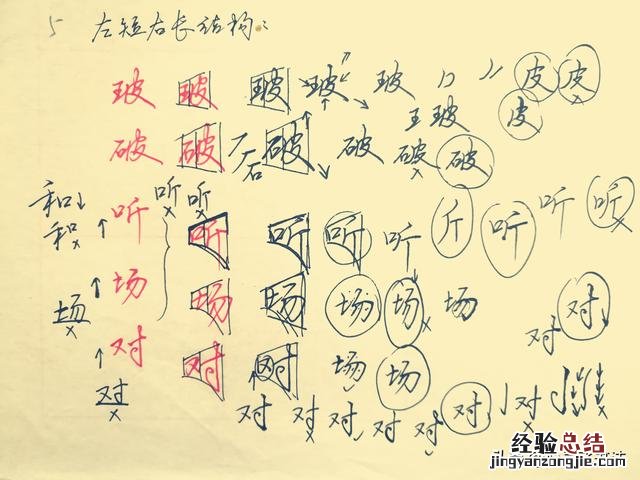 5 左短右长结构:
玻 玻 玻 玻 玻 皮 皮
王 玻 皮
破 破 石 破 破 破 破
和 听 听 听
和 听 听 听 听 听 斤 听 听 听
场 场 场 场 场 场 场
对 对
对 对 对 场 场
对 对 对 对 对 对 对 对 对
经验总结
jingyanzongjie.com